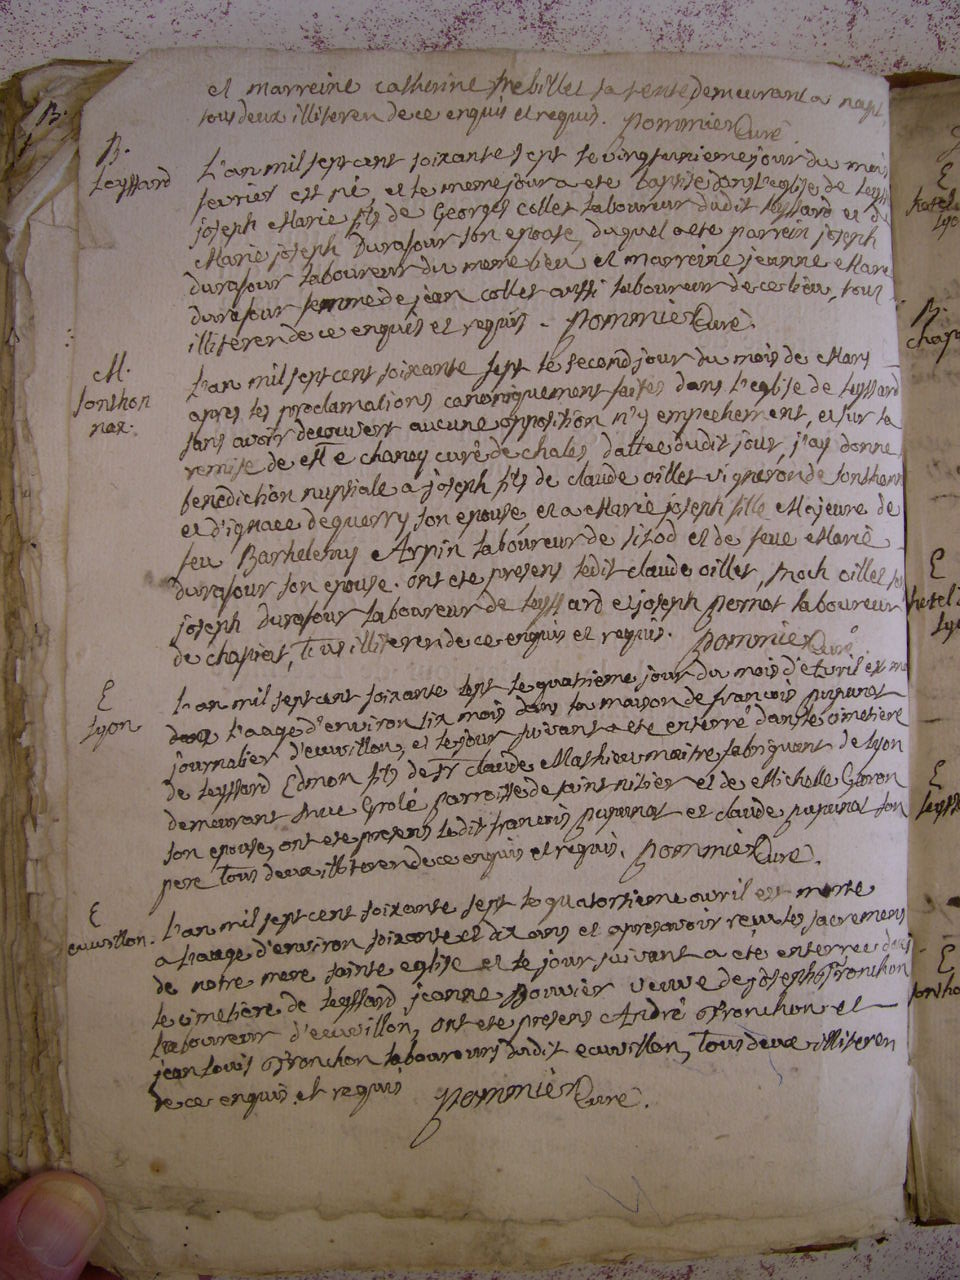 et marreine catherine trebillet sa tente demeurant a napt,
tous deux illiteren de ce enquis et requis. pommier Curé
B.
B.
Leyssard
L'an mil sept cent soixante sept le vingtunieme jour du mois
fevrier est né et le meme jour a ete baptisé dans l'eglise de Leyss
joseph Marie fils de Georges collet laboureur dudit Leyssard et de
Marie joseph Durafour son epouse, duquel a ete parrein joseph
durafour laboureur du meme lieu et marreine jeanne Marie
durafour femme de jean collet aussi laboureur de ce lieu, tous
illiteren de ce enquis et requis. pommier Curé.
M.
sonthon
nax.
L'an mil sept cent soixante sept le second jour du mois de Mars
apres les proclamations canoniquement faites dans l'eglise de Leyssard
sans avoir decouvert aucune opposition n'y empechement, et sur la
remise de Mre chaney curé de chales dattée dudit jour, j'ay donné
benediction nuptiale a joseph fils de claude oillet vigneron de sonthonn
et d'ignace deguerry son epouse et a Marie joseph fille Majeure de
feu Barthelemy Arpin laboureur de lisod et de feue Marie
durafour son epouse. ont ete presens ledit claude oillet, Roch oillet
joseph durafour laboureur de Leyssard et joseph pernot laboureur
de chapiat, tous illiteren de ce enquis et requis. pommier Curé
E
Lyon
L'an mil sept cent soixante sept le quatrieme jour du mois d'Avril est mo
l'aage d'environ six mois dans la maison de francois pupunat
journalier d'euvillon, et le jour suivant a ete enterré dans le cimetiere
de Leyssard Edmon fils de Sr claude Mathieu maitre fabriquant de Lyon
demeurant Rue Grolé parroisse de saint nisier et de Michelle Goron
son epouse, ont ete presens ledit francois pupunat et claude pupunat son
pere tous deux illiteren de ce enquis et requis. pommier Curé.
E
euvillon.
L'an mil sept cent soixante sept le quatorsieme avril est morte
a l'aage d'environ soixante et dix ans et apres avoir reçu les sacremens
de notre mere sainte eglise et le jour suivant a ete enterrée dans
le cimetiere de Leyssard jeanne Bouvier veuve de joseph Tronchon
laboureur d'euvillon, ont ete presens André Tronchon et
jean Louis Tronchon laboureurs dudit euvillon, tous deux illiteren
de ce enquis et requis pommier Curé.